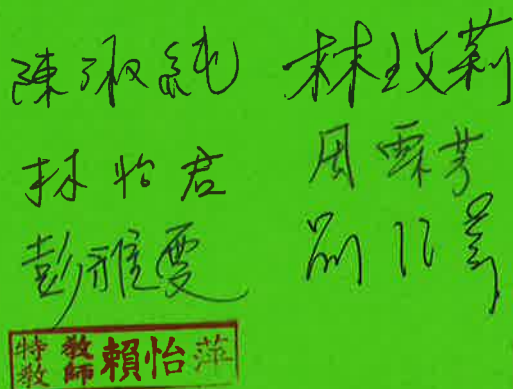 陳淑純 林玫莉
林怡君 周霖芳
彭雅雯
特教 教師 賴怡萍